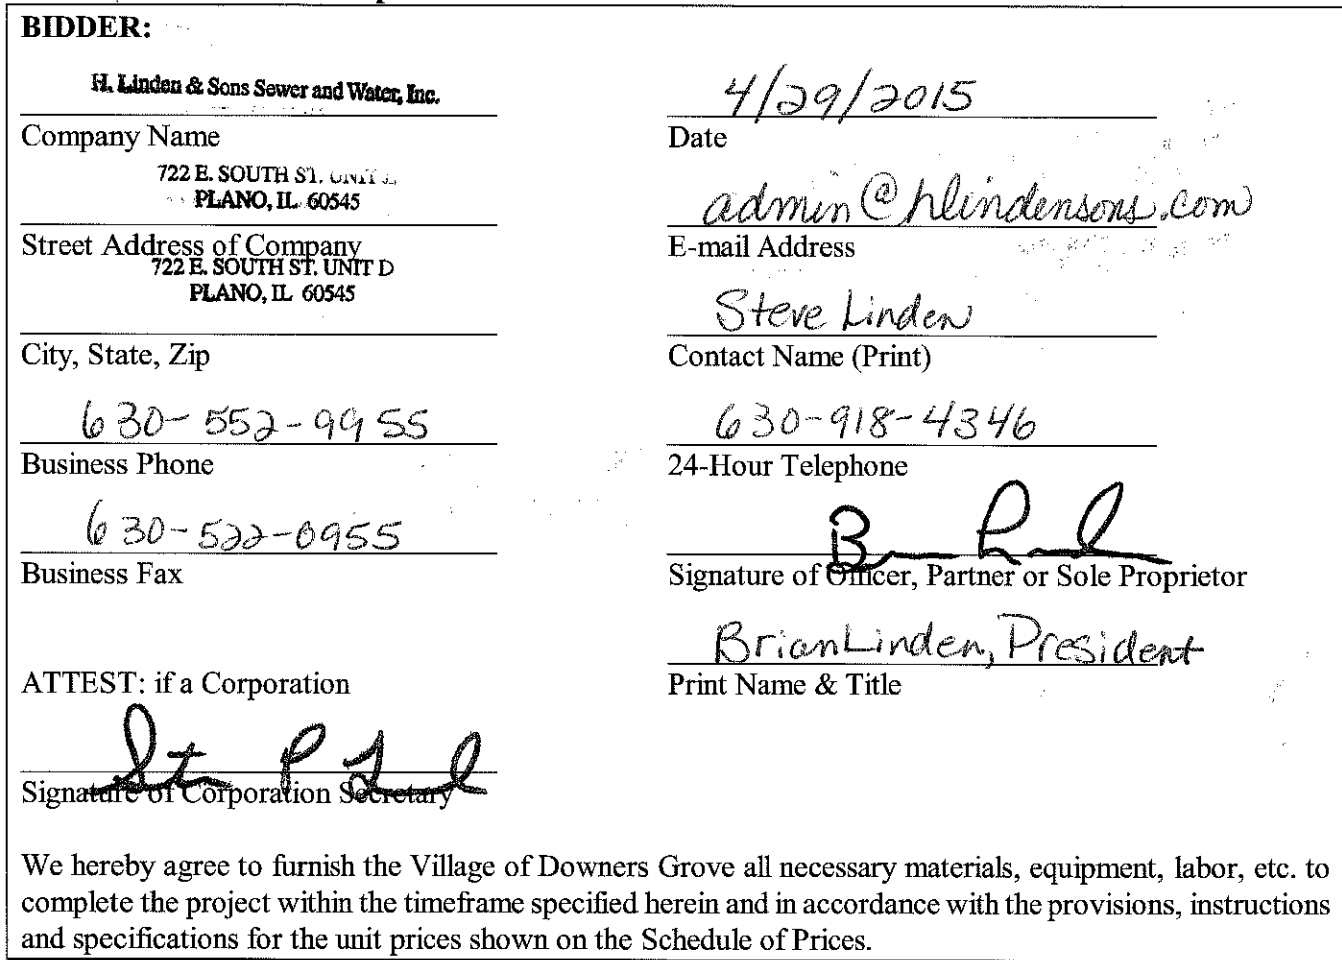 BIDDER:
H. Linden & Sons Sewer and Water, Inc.
Company Name
722 E. SOUTH ST. UNIT
PLANO, IL 60545
Street Address of Company
722 E. SOUTH ST. UNIT D
PLANO, IL 60545
City, State, Zip
630-552-9955
Business Phone
630-522-0955
Business Fax
ATTEST: if a Corporation
Signature of Corporation Secretary
4/29/2015
Date
admin@hlindensons.com
E-mail Address
Steve Linden
Contact Name (Print)
630-918-4346
24-Hour Telephone
Signature of Officer, Partner or Sole Proprietor
Brian Linden, President
Print Name & Title
We hereby agree to furnish the Village of Downers Grove all necessary materials, equipment, labor, etc. to
complete the project within the timeframe specified herein and in accordance with the provisions, instructions
and specifications for the unit prices shown on the Schedule of Prices.